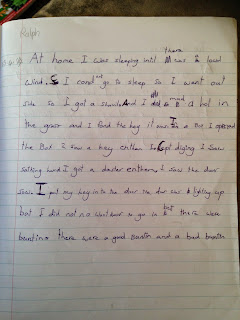 Ralph
At home I was sleeping intil there was a loud
wind. I cond not go to sleep so I went out
side so I got a shovle And I did mad a hol in
the grass and I fond the key it was in a Box I opened
the Box I saw a key enthem So kept diging I saw
salking hard I got a darker enthem, I saw the dor
I put my key in to the dor the dor was lighting up
but I did not no what dor to go in but there were
there were a good and a bad